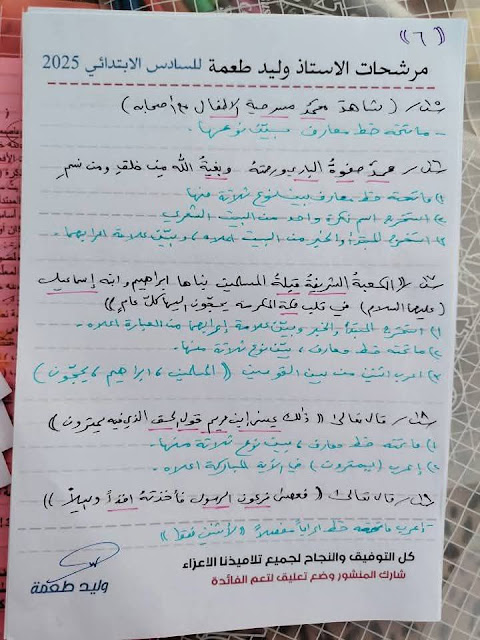 ((٦))
مرشحات الاستاذ وليد طعمة للسادس الابتدائي 2025
س٥/ ( شاهدَ محمدٌ مسرحية الأطفال مع اصحابه )
- ما تحته خط معارف بيّن نوعها.
س٦/ محمدٌ صفوةُ الباري ورحمتهُ وبغيةُ الله من خلقٍ ومن نسمِ
١) ما تحته خط معارف بين نوع ثلاثة منها
٢) استخرج اسم نكرة واحد من البيت الشعري
٣) استخرج المبتدأ والخبر من البيت اعلاه ، وبيّن علامة اعرابهما.
س٧/ (( الكعبة الشريفة قبلة المسلمين بناها ابراهيم وابنه إسماعيل
(عليهما السلام) في قلب مكة المكرمة يحجّون اليها كلّ عام ))
١) استخرج المبتدأ والخبر وبيّن علامة إعرابهما من العبارة اعلاه.
٢) ما تحته خط معارف ، بيّن نوع ثلاثة منها.
٣) اعرب اثنين من بين القوسين ( المسلمين ، ابراهيم ، يحجّون )
س٨/ قال تعالى (( ذلك عيسى ابن مريم قول الحق الذي فيه يمترون ))
١) ما تحته خط معارف ، بيّن نوع ثلاثة منها.
٢) اعرب (يمترون) في الآية المباركة اعلاه.
س٩/ قال تعالى ( فعصى فرعون الرسول فأخذنهُ اخذاً وبيلاً ))
- اعرب ما تحته خط اعراباً مفصلاً (( لأثنين فقط ))
كل التوفيق والنجاح لجميع تلاميذنا الاعزاء
شارك المنشور وضع تعليق لتعم الفائدة
وليد طعمة